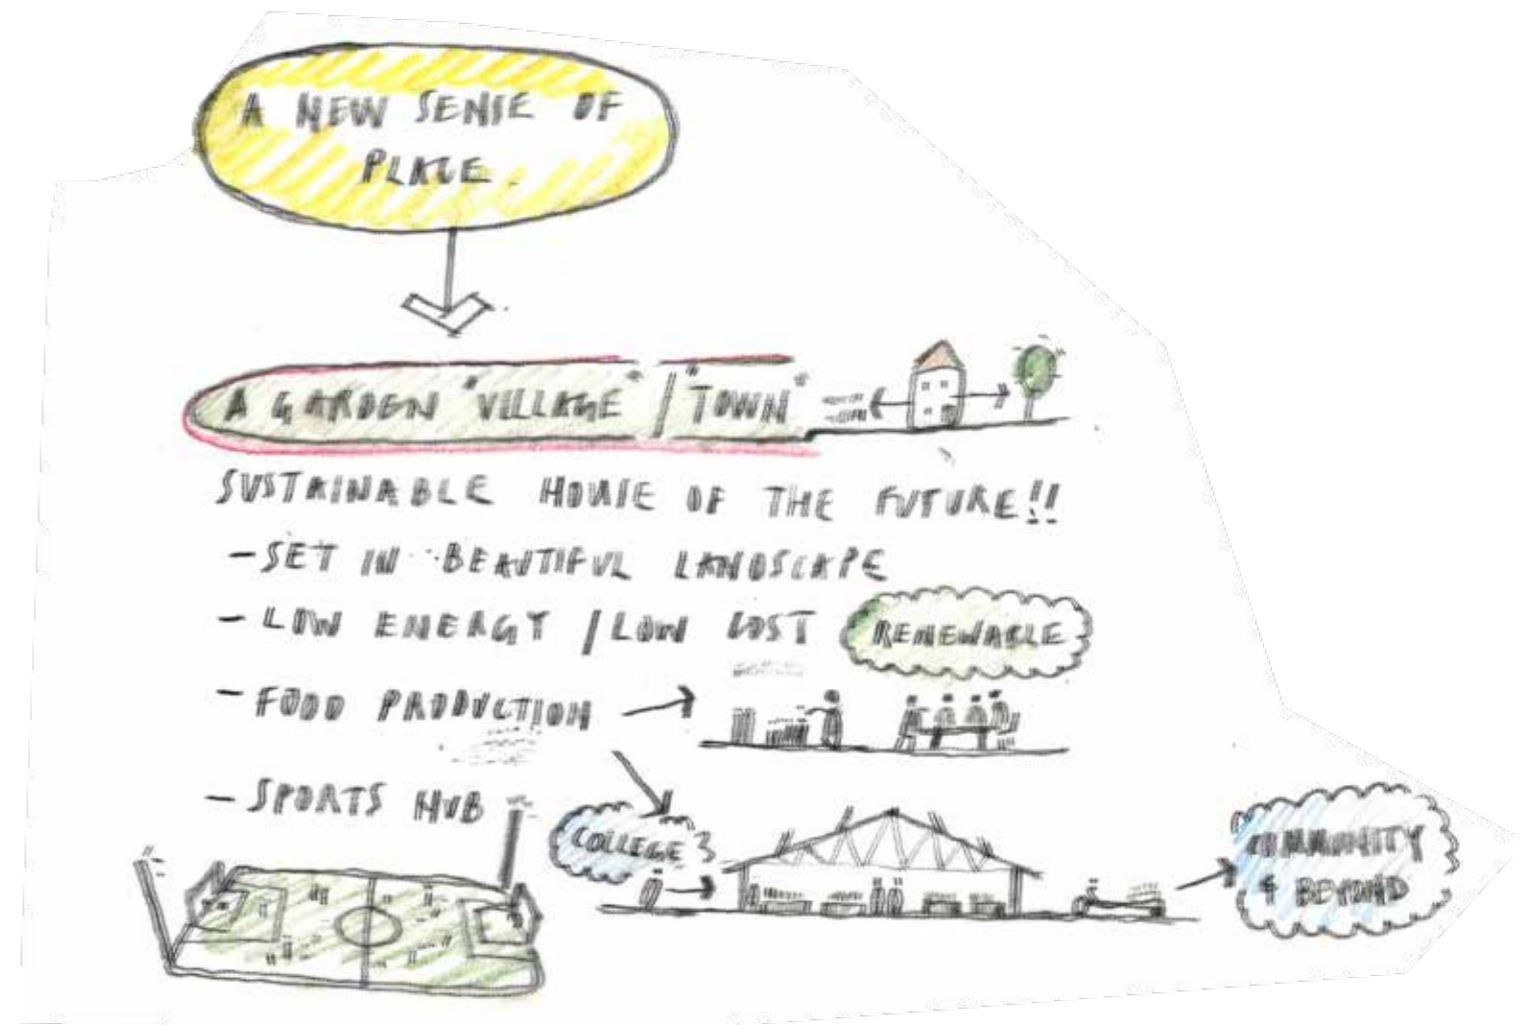 A NEW SENSE OF
PLACE.
A GARDEN "VILLAGE" / "TOWN"
SUSTAINABLE HOUSE OF THE FUTURE!!
- SET IN BEAUTIFUL LANDSCAPE
- LOW ENERGY / LOW COST RENEWABLE
- FOOD PRODUCTION
- SPORTS HUB
COLLEGE
COMMUNITY
& BEYOND